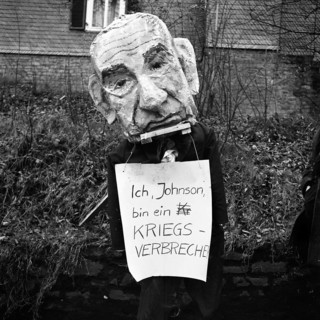 Ich, Johnson,
bin ein
KRIEGS-
VERBRECHE